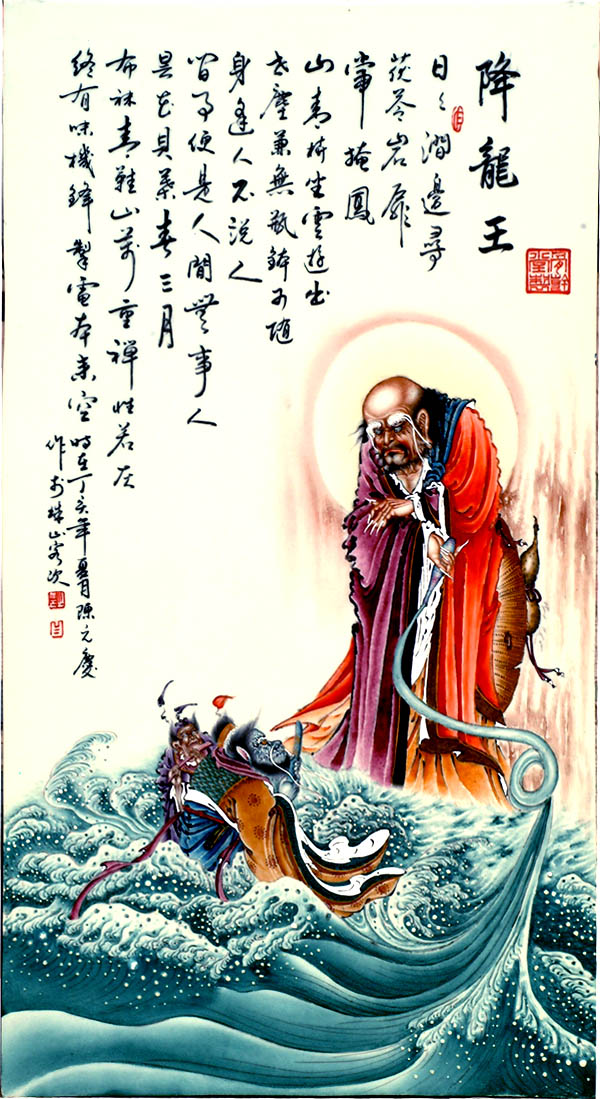 降龍王
日々澗邊尋
茯苓岩扉
常掩鳳
山青椅坐雲遊出
世塵兼無瓶鉢可隨
身逢人不說人
間事便是人間無事人
曇花貝葉春三月
布袜青鞋山萬重禪性若灰
終有味機鋒掣電本來空
時在丁亥年夏月陳元慶
作於珠山客次